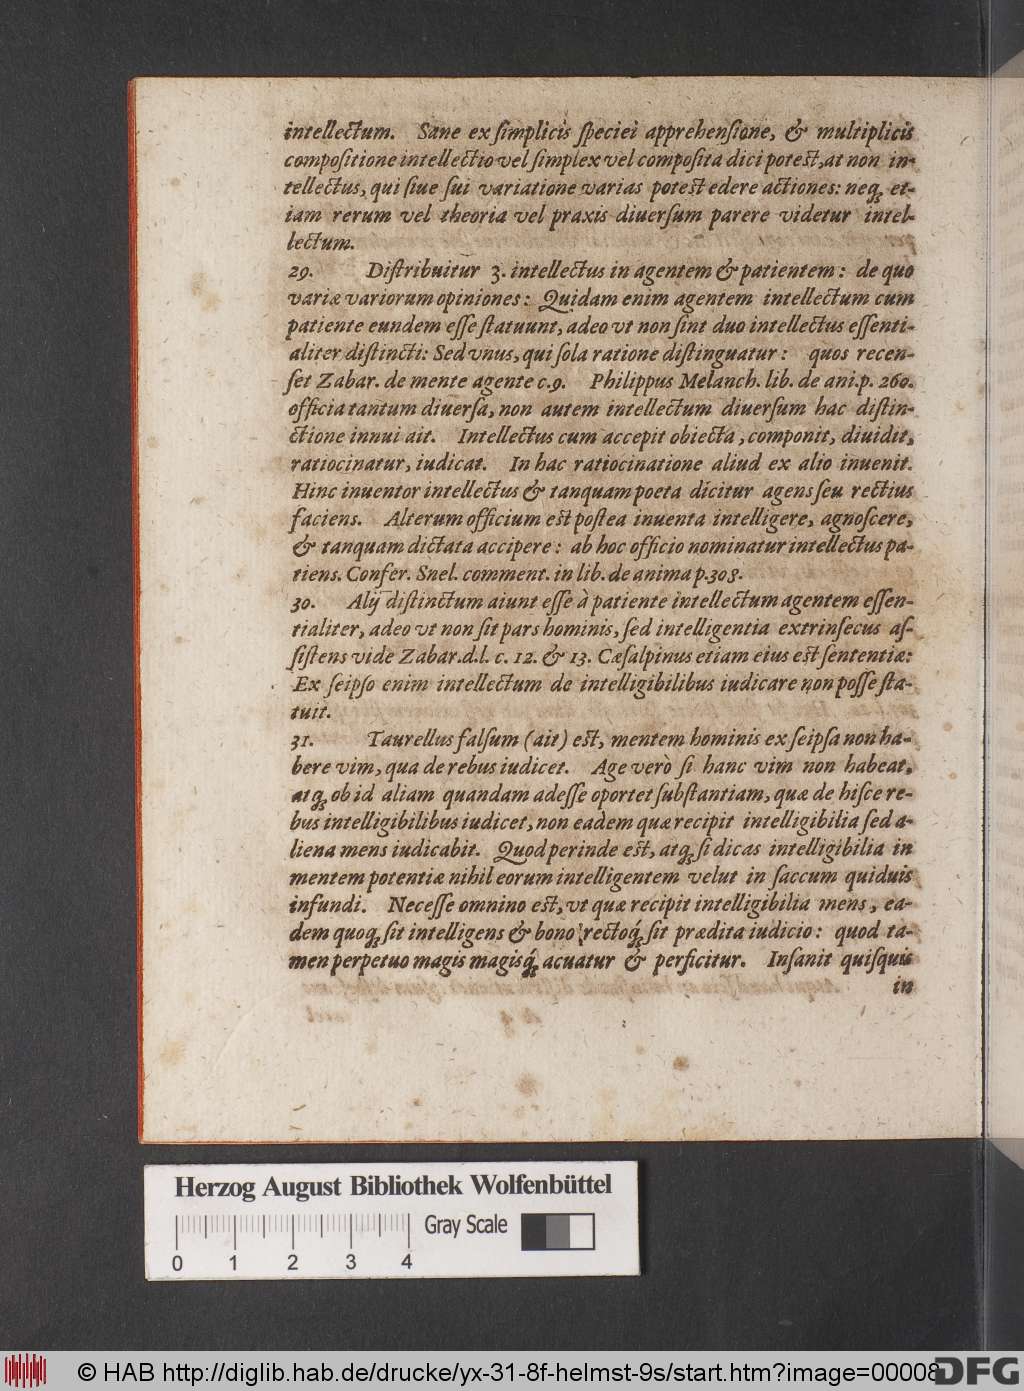 intellectum. Sane ex ſimplicis ſpeciei apprehenſione, & multiplicis
compoſitione intellectio vel ſimplex vel compoſita dici poteſt, at non in-
tellectus, qui ſiue ſui variatione varias poteſt edere actiones: neq; et-
iam rerum vel theoria vel praxis diuerſum parere videtur intel-
lectum.
29. Diſtribuitur 3. intellectus in agentem & patientem: de quo
variæ variorum opiniones: Quidam enim agentem intellectum cum
patiente eundem eſſe ſtatuunt, adeo vt non ſint duo intellectus eſſenti-
aliter diſtincti: Sed vnus, qui ſola ratione diſtinguatur: quos recen-
ſet Zabar. de mente agente c. 9. Philippus Melanch. lib. de ani. p. 260.
officia tantum diuerſa, non autem intellectum diuerſum hac diſtin-
ctione innui ait. Intellectus cum accepit obiecta, componit, diuidit,
ratiocinatur, iudicat. In hac ratiocinatione aliud ex alio inuenit.
Hinc inuentor intellectus & tanquam poeta dicitur agens ſeu rectius
faciens. Alterum officium eſt poſtea inuenta intelligere, agnoſcere,
& tanquam dictata accipere: ab hoc officio nominatur intellectus pa-
tiens. Confer. Snel. comment. in lib. de anima p. 308.
30. Alij diſtinctum aiunt eſſe à patiente intellectum agentem eſſen-
tialiter, adeo vt non ſit pars hominis, ſed intelligentia extrinſecus aſ-
ſiſtens vide Zabar. d. l. c. 12. & 13. Cæſalpinus etiam eius eſt ſententiæ:
Ex ſeipſo enim intellectum de intelligibilibus iudicare non poſſe ſta-
tuit.
31. Taurellus falſum (ait) eſt, mentem hominis ex ſeipſa non ha-
bere vim, qua de rebus iudicet. Age verò ſi hanc vim non habeat,
atq; ob id aliam quandam adeſſe oportet ſubſtantiam, quæ de hiſce re-
bus intelligibilibus iudicet, non eadem quæ recipit intelligibilia ſed a-
liena mens iudicabit. Quod perinde eſt, atq; ſi dicas intelligibilia in
mentem potentiæ nihil eorum intelligentem velut in ſaccum quiduis
infundi. Neceſſe omnino eſt, vt quæ recipit intelligibilia mens, ea-
dem quoq; ſit intelligens & bono rectoq́; ſit prædita iudicio: quod ta-
men perpetuo magis magisq́; acuatur & perficitur. Inſanit quiſquis
in
Herzog August Bibliothek Wolfenbüttel
Gray Scale
0 1 2 3 4
© HAB http://diglib.hab.de/drucke/yx-31-8f-helmst-9s/start.htm?image=00008
DFG